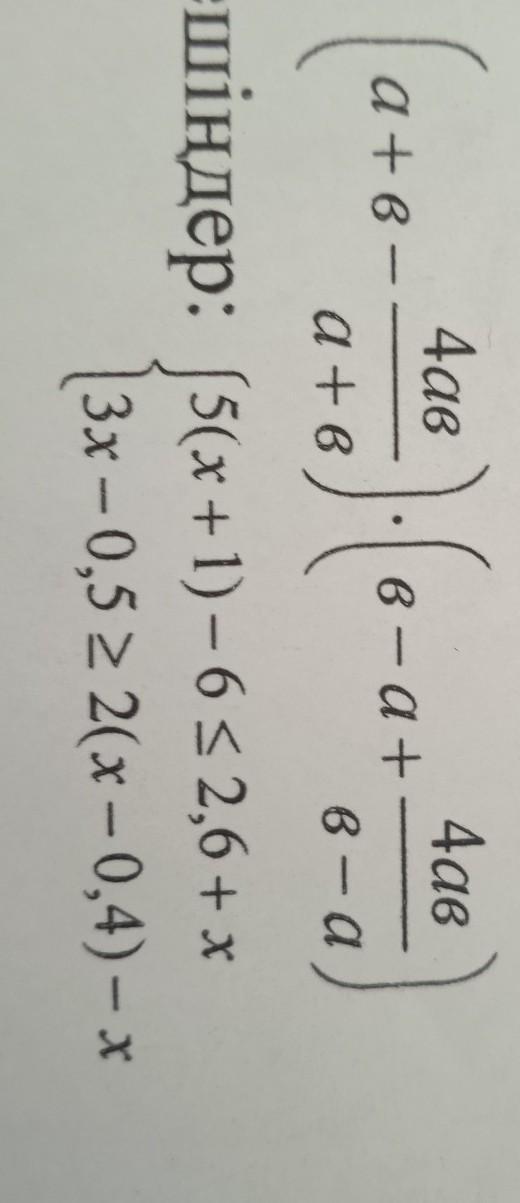 (а + в − 4ав/(а + в)) · (в − а + 4ав/(в − а))
шіңдер: { 5(x + 1) − 6 ≤ 2,6 + x
3x − 0,5 ≥ 2(x − 0,4) − x